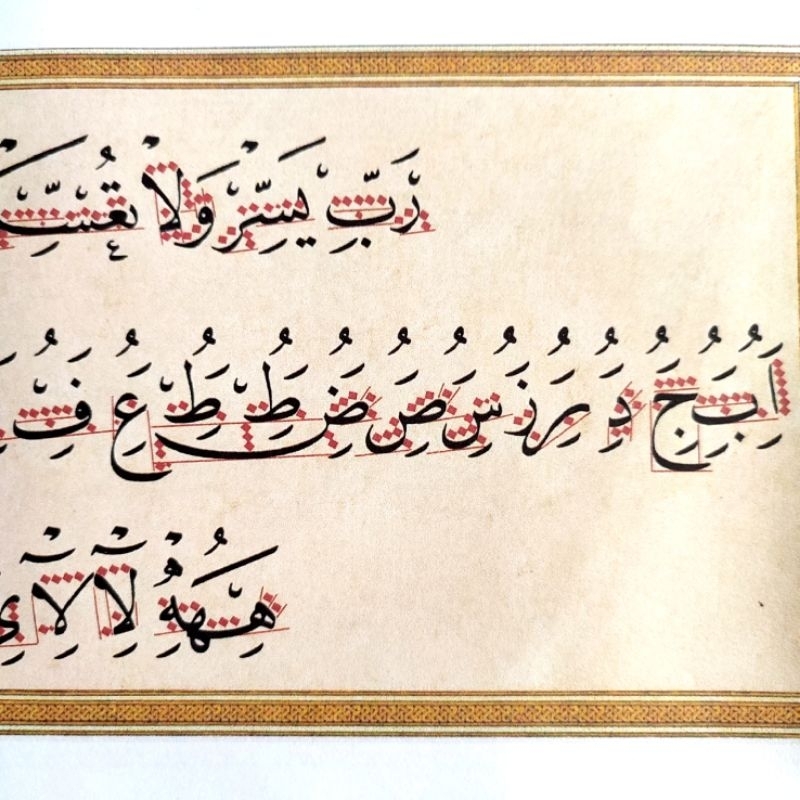 رَبِّ يَسِّرْ وَلَا تُعَسِّ
ا ب ج د ر ز س ص ض ط ظ ع ف
ه ه لا لا ي